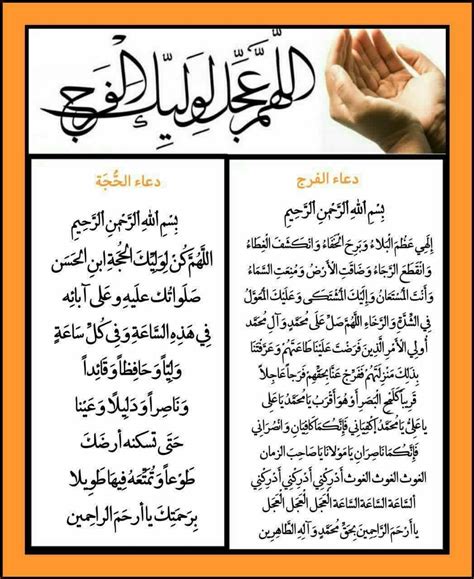 اللهم عجل لوليك الفرج
دعاء الفرج
بِسْمِ اللهِ الرَّحْمٰنِ الرَّحِيْمِ
إِلٰهِي عَظُمَ الْبَلَاءُ وَبَرِحَ الْخَفَاءُ وَانْكَشَفَ الْغِطَاءُ
وَانْقَطَعَ الرَّجَاءُ وَضَاقَتِ الْأَرْضُ وَمُنِعَتِ السَّمَاءُ
وَأَنْتَ الْمُسْتَعَانُ وَإِلَيْكَ الْمُشْتَكَى وَعَلَيْكَ الْمُعَوَّلُ
فِي الشِّدَّةِ وَالرَّخَاءِ اللَّهُمَّ صَلِّ عَلَى مُحَمَّدٍ وَآلِ مُحَمَّدٍ
أُولِي الْأَمْرِ الَّذِينَ فَرَضْتَ عَلَيْنَا طَاعَتَهُمْ وَعَرَّفْتَنَا
بِذَلِكَ مَنْزِلَتَهُمْ فَفَرِّجْ عَنَّا بِحَقِّهِمْ فَرَجاً عَاجِلاً
قَرِيباً كَلَمْحِ الْبَصَرِ أَوْ هُوَ أَقْرَبُ يَا مُحَمَّدُ يَا عَلِيُّ
يا عَلِيُّ يا مُحَمَّدُ اِكْفِيَانِي فَإِنَّكُمَا كَافِيَانِ وَانْصُرَانِي
فَإِنَّكُمَا نَاصِرَانِ يَا مَوْلَانَا يَا صَاحِبَ الزمان
الغوث الغوث الغوث أَدْرِكْنِي أَدْرِكْنِي أَدْرِكْنِي
السَّاعَةَ السَّاعَةَ السَّاعَةَ الْعَجَلَ الْعَجَلَ الْعَجَلَ
يا أَرْحَمَ الرَّاحِمِينَ بِحَقِّ مُحَمَّدٍ وَآلِهِ الطَّاهِرِينَ
دعاء الحُّجَة
بِسْمِ اللهِ الرَّحْمٰنِ الرَّحِيْمِ
اللَّهُمَّ كُنْ لِوَلِيِّكَ الْحُجَّةِ ابنِ الْحَسَنِ
صَلَواتُكَ عَلَيهِ وعَلى آبائِهِ
فِي هَذِهِ السَّاعَةِ وَفِي كُلِّ سَاعَةٍ
وَلِيّاً وَحَافِظاً وَ قَائِداً
وَنَاصِراً وَدَلِيلاً وَعَيْنا
حَتَّى تسكنه أرضَكَ
طَوْعاً وَتُمَتِّعَهُ فِيهَا طَوِيلا
بِرَحمَتِكَ يا أرحَمَ الراحمين